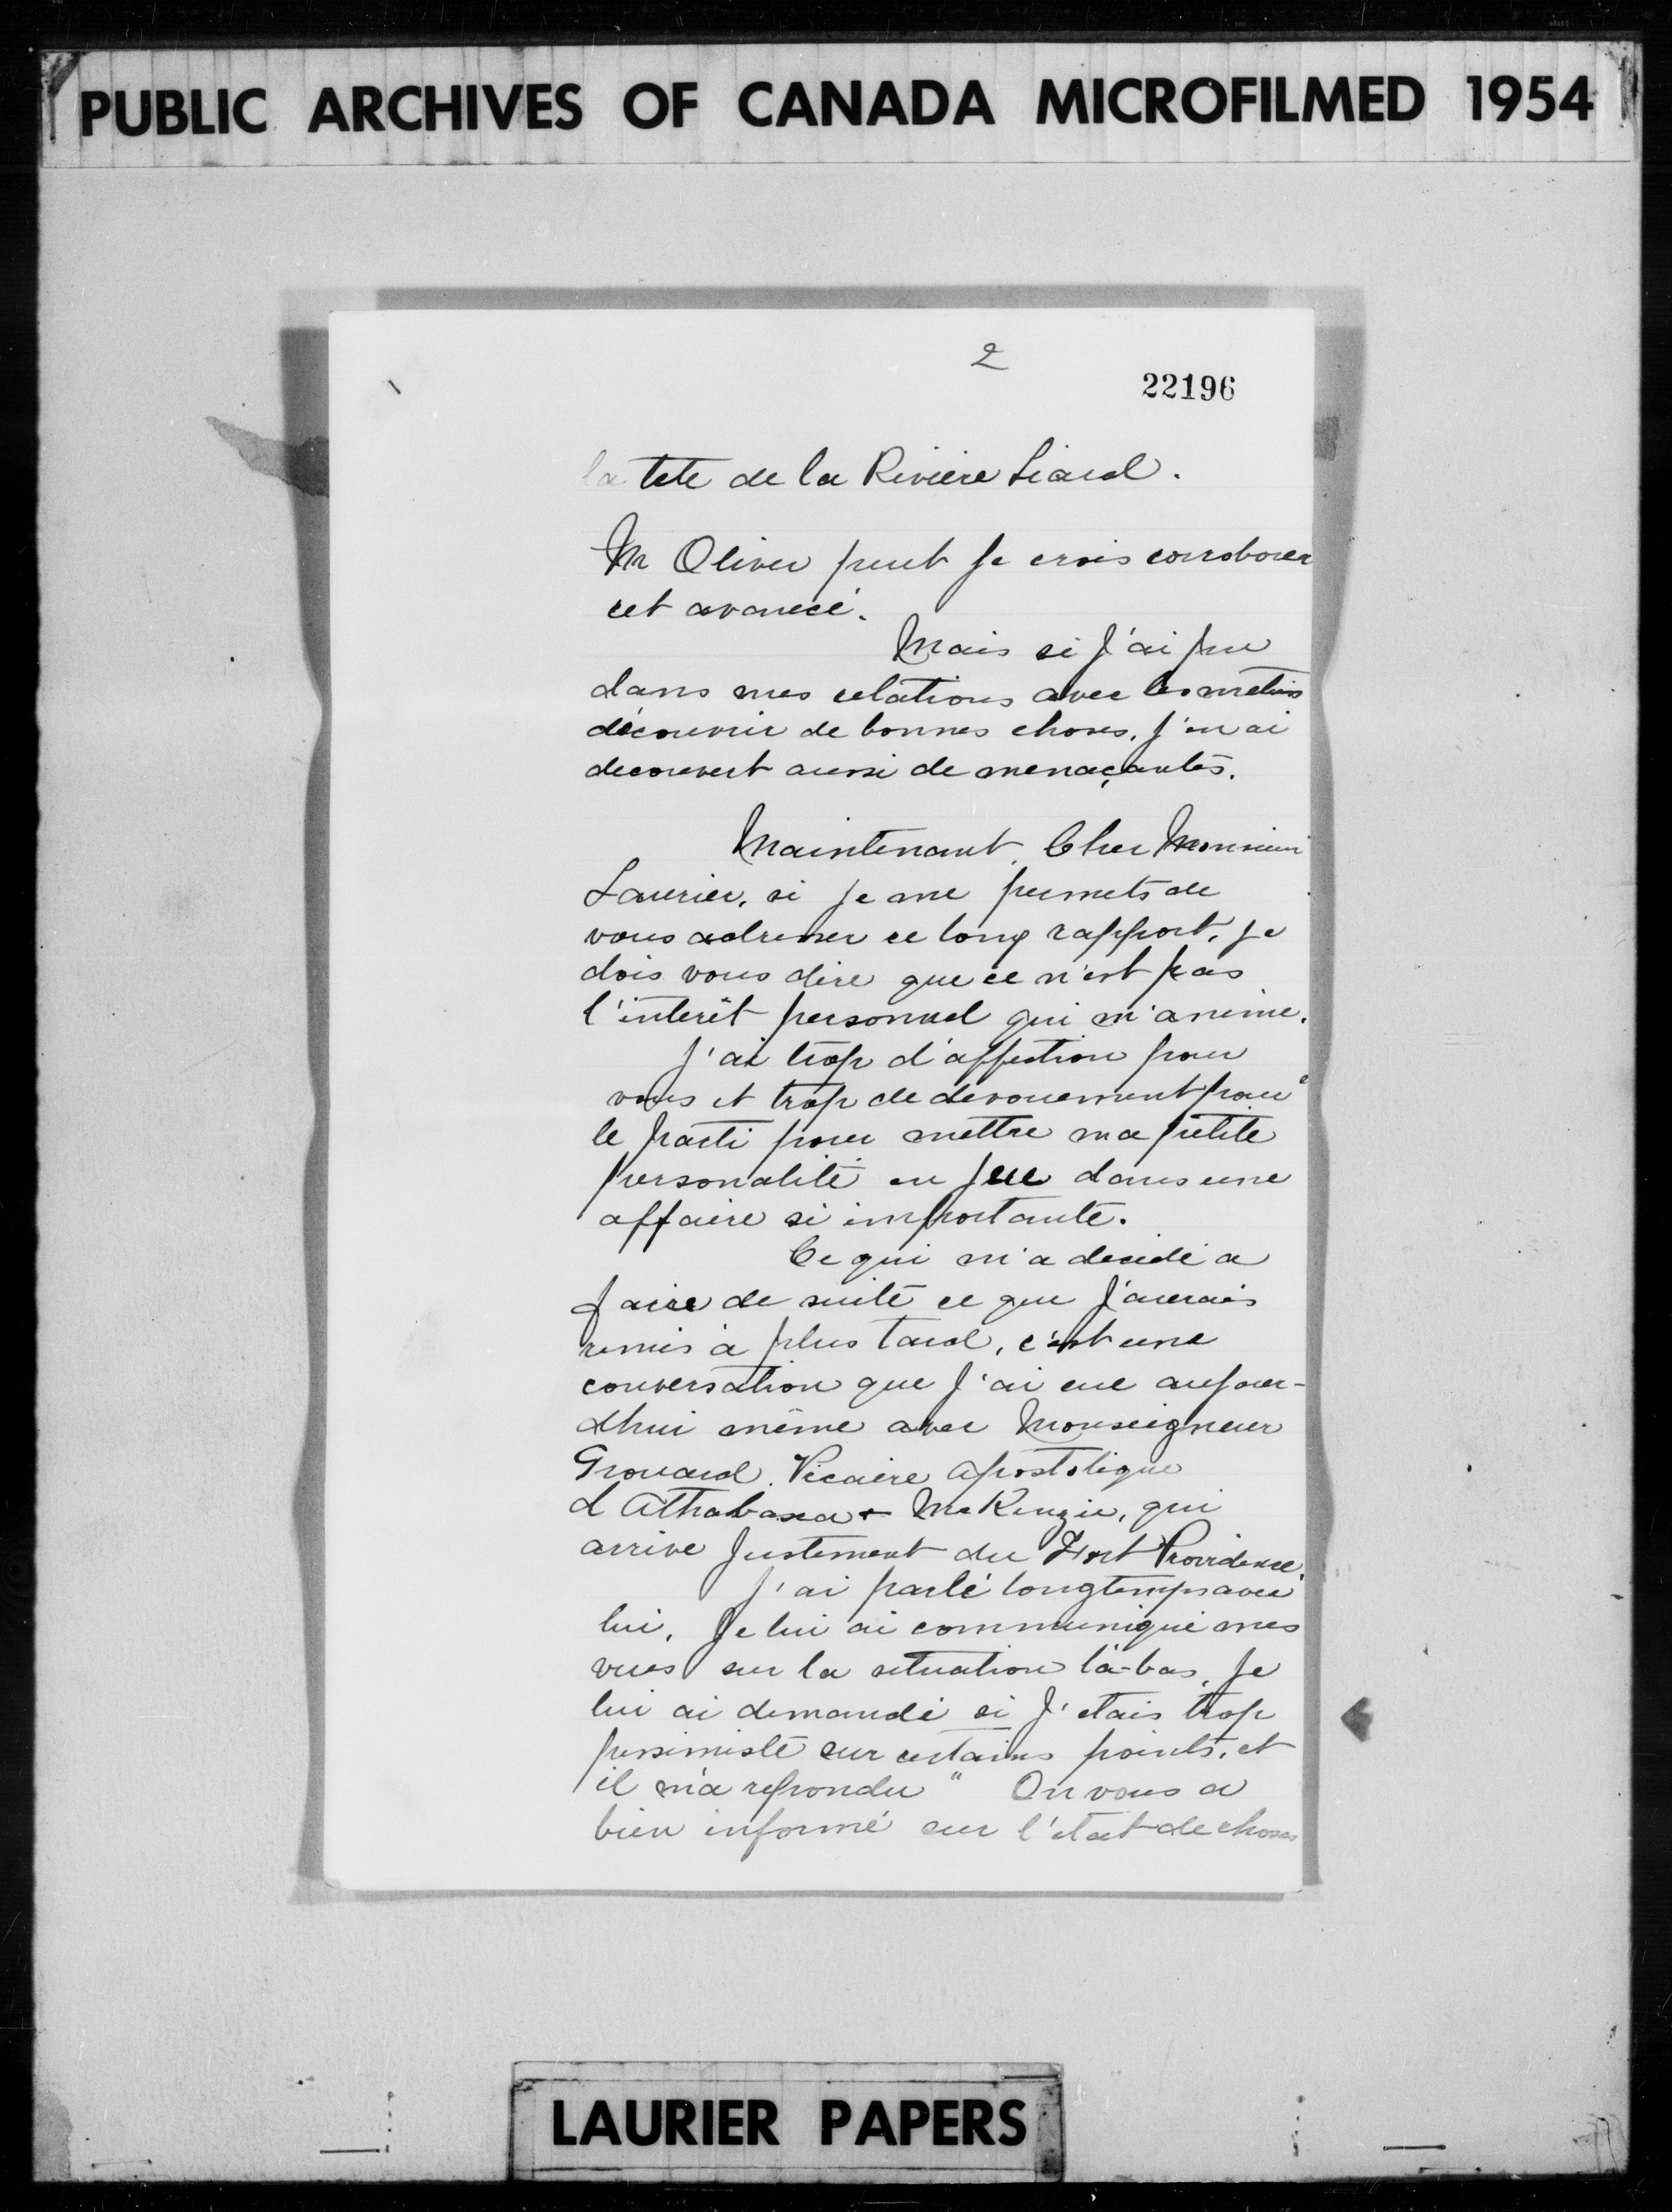 PUBLIC ARCHIVES OF CANADA MICROFILMED 1954
2
22196
la tete de la Riviere Liard.
Mr Oliver peut Je crois corroborer
cet avancé.
Mais si J'ai pu
dans mes relations avec les métis
découvrir de bonnes choses, J'en ai
decouvert aussi de menaçantes.
Maintenant, Cher Monsieur
Laurier, si Je me permets de
vous adresser ce long rapport, Je
dois vous dire que ce n'est pas
l'interêt personnel qui m'anime.
J'ai trop d'affection pour
vous et trop de devouement pour
le parti pour mettre ma petite
personalité en Jeu dans une
affaire si importante.
Ce qui m'a decidé a
faire de suite ce que J'aurais
remis à plus tard, c'est une
conversation que J'ai eue aujour-
dhui même avec Monseigneur
Grouard, Vicaire Apostolique
d Athabasca + McKenzie, qui
arrive Justement du Fort Providence.
J'ai parlé longtemps avec
lui, Je lui ai communiqué mes
vues sur la situation là-bas, Je
lui ai demandé si J'etais trop
pessimiste sur certains points, et
il m'a repondu " On vous a
bien informé sur l'etat de choses
LAURIER PAPERS